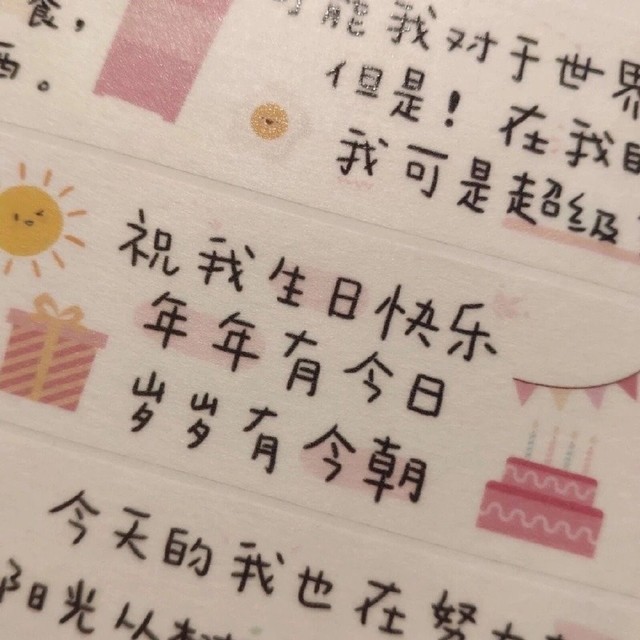 食，
能我对于世界
西。
但是！在我
我可是超级
祝我生日快乐
年年有今日
岁岁有今朝
今天的我也在努
阳光从